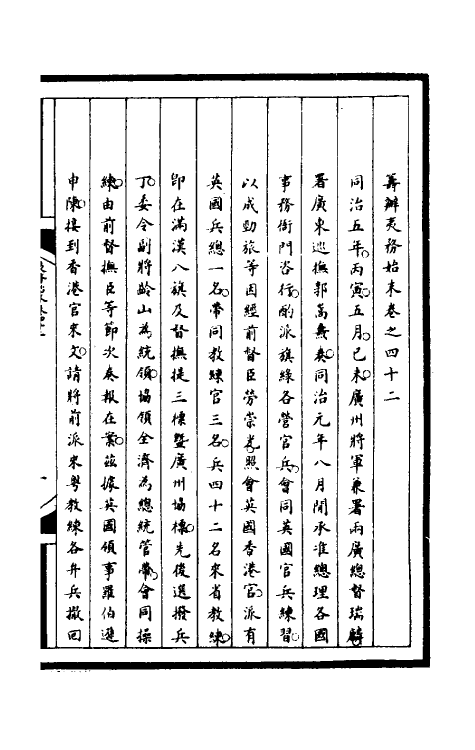 籌辦夷務始末卷之四十二
同治五年。丙寅。五月。己未。廣州將軍兼署兩廣總督瑞麟。
署廣東巡撫郭嵩燾奏。同治元年八月閒承准總理各國
事務衙門咨行。酌派旗綠各營官兵。會同英國官兵練習。
以成勁旅等因經前督臣勞崇光。照會英國香港官。派有
英國兵總一名。帶同教練官三名。兵四十二名來省教練。
卽在滿漢八旗及督撫提三標暨廣州協標。先後選撥兵
丁。委令副將齡山為統領。協領全濟為總統管帶。會同操
練。由前督撫臣等節次奏報在案。茲據英國領事羅伯遜
申陳。接到香港官來文。請將前派來粵教練各弁兵撤回